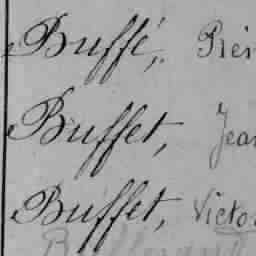 Buffé,
Buffet, Jean
Buffet, Victo